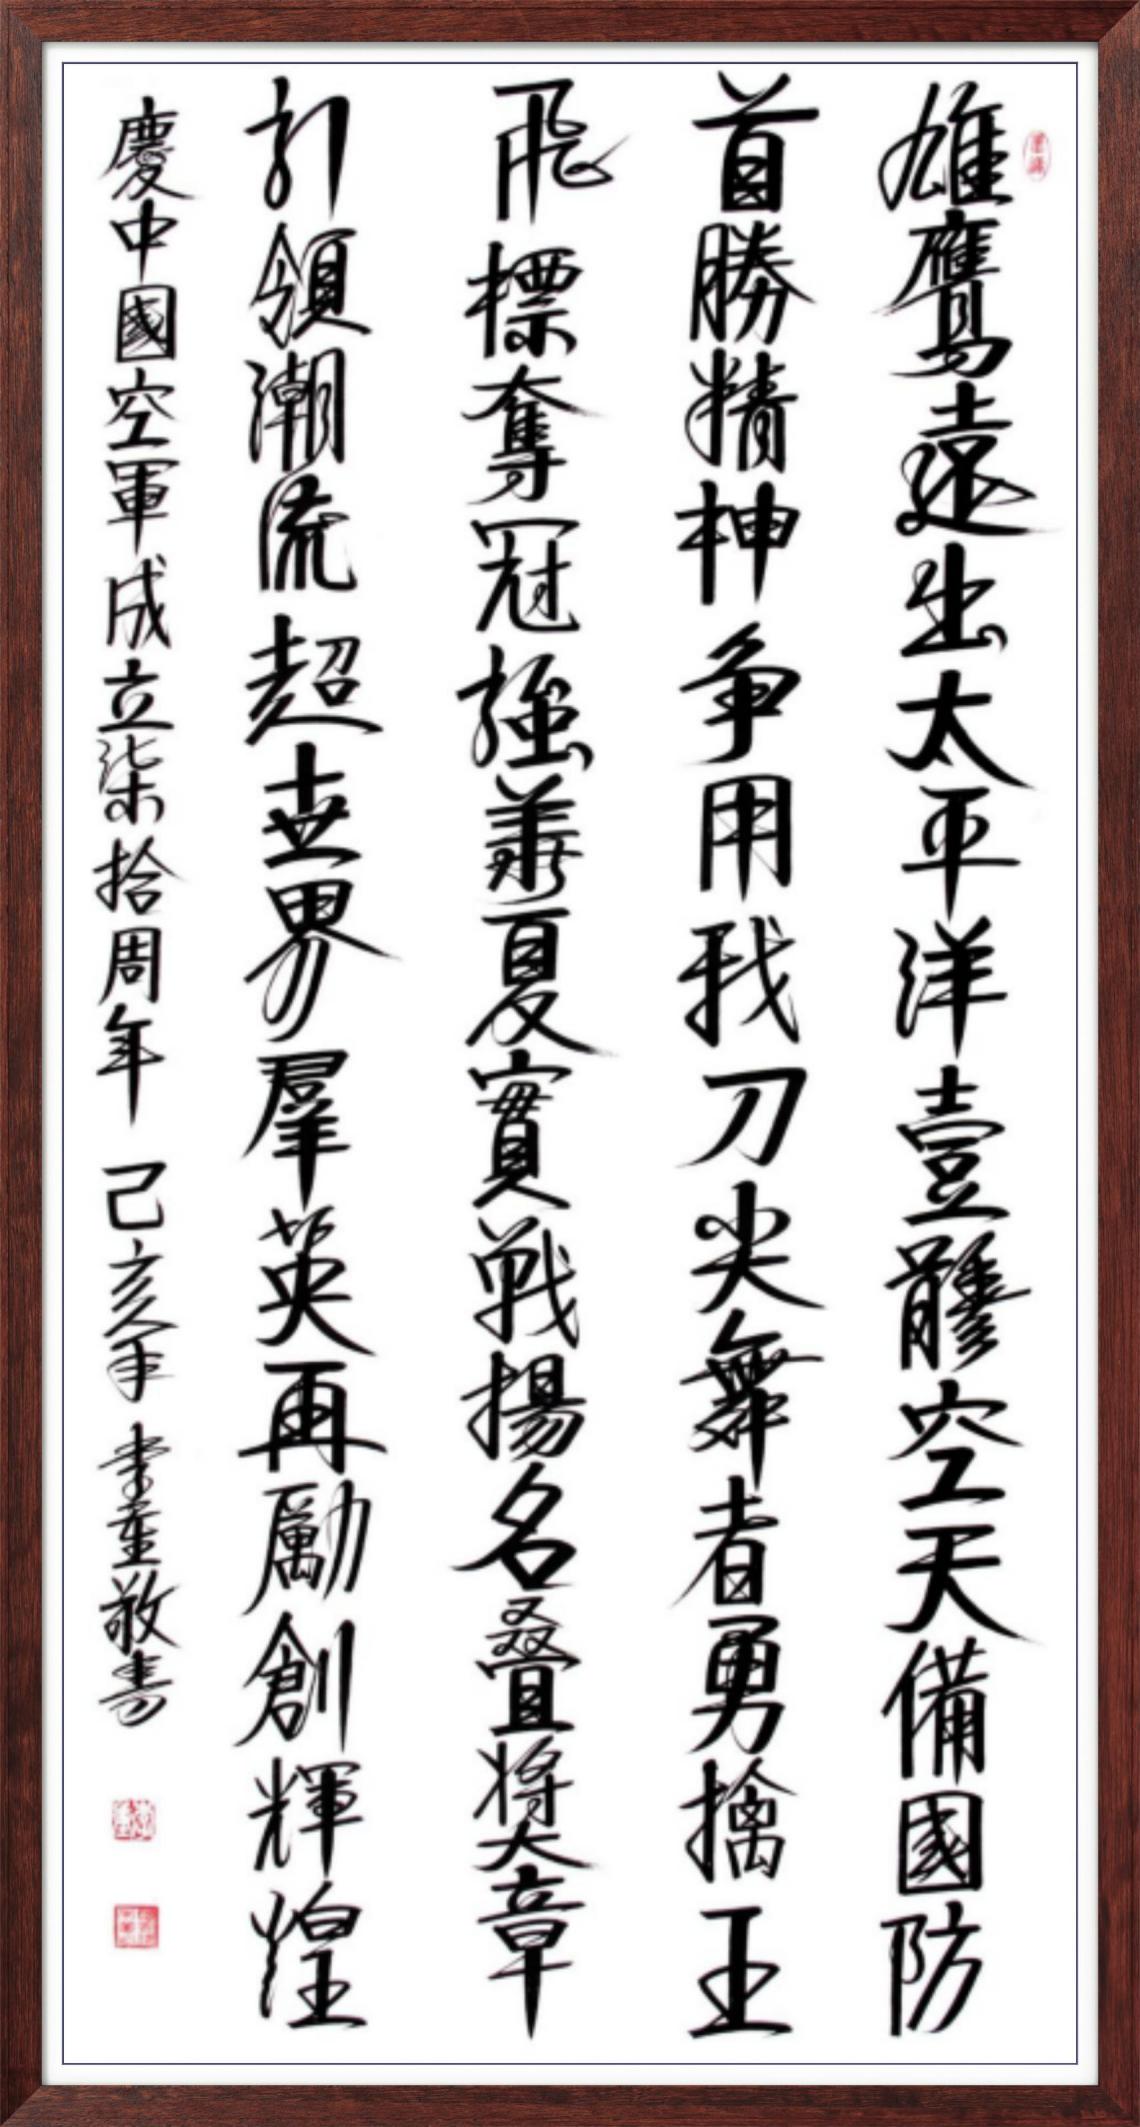 雄鷹遠出太平洋壹體空天備國防
首勝精神争用我刀尖舞者勇擒王
飛標奪冠強華夏實戰揚名叠奬章
引領潮流超世界羣英再勵創輝煌
慶中國空軍成立柒拾周年 己亥年 敬書